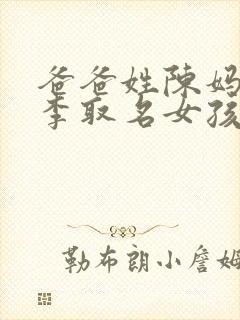 爸爸姓陈妈
李取名女孩
勒布朗小詹姆